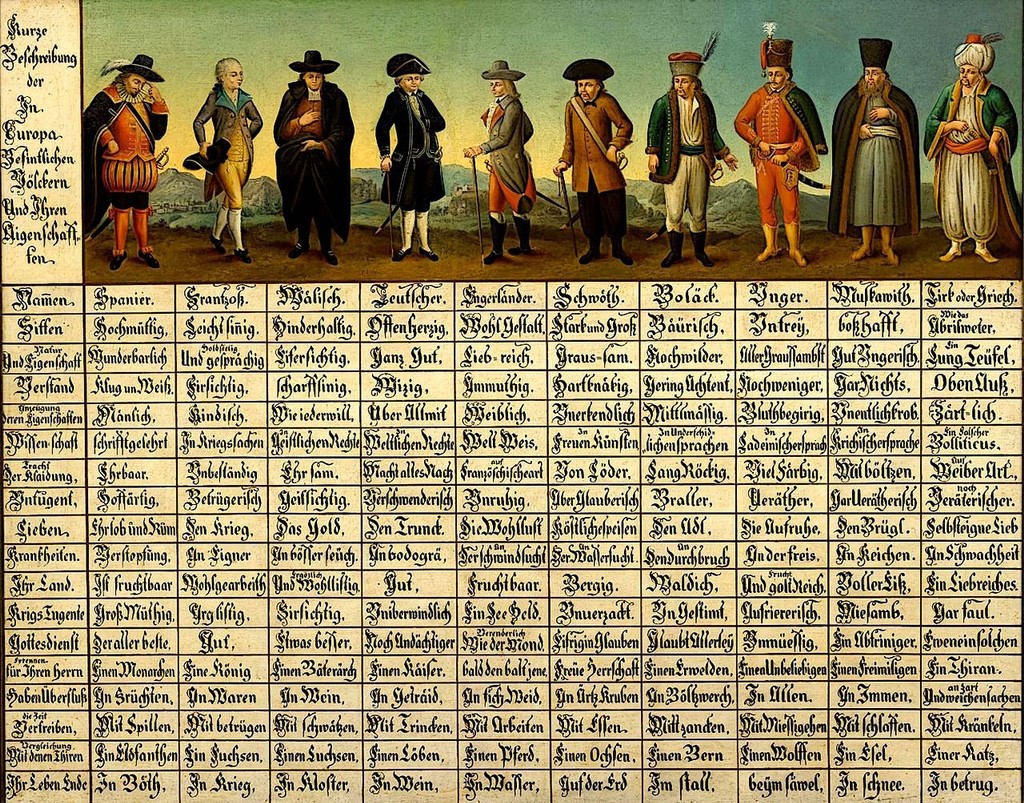 Kurze
Beschreibung
der
In
Europa
Befintlichen
Völckern
Und Ihren
Aigenschaff-
ten.
Namen. Spanier. Frantzoß. Wälisch. Teutscher. Engerländer. Schwöth. Boläck. Unger. Muskawith. Tirk oder Griech.
Sitten Hochmüttig, Leichtsinig. Hinderhaltig. Offenherzig, Wohl Gestalt, Stark und Groß Bäurisch, Untrey, boßhafft, Wie das Abrilweter,
Natur Und Eigenschaft Wunderbarlich Holdseelig Und gesprächig Eifersichtig. Ganz Gut, Lieb-reich, Graus-sam. Nochwilder, Aller Graussambst Gut Ungerisch, Ein Lung Teüfel.
Verstand Klug un Weiß. Firsichtig, scharffsinig. Wizig, Ammuthig. Hartknäbig, Gering Achtent, Nochweniger, Gar Nichts, Oben Auß,
Anzeügung deren Eigenschaften Mänlich, Kindisch, Wie iederwill, Über Allmit Weiblich. Unerkendlich Mittlmässig. Bluthbegirig, Unentlich krob. Zärt-lich.
Wissenschaft schrifftgelehrt In Kriegssachen In Geistlichen Rechte In Weltlichen Rechte Welt Weis, In Freuen Künsten In Underschid-lichen sprachen In Ladeinischersprach In Krichischersprache Ein falscher Bolliticus.
Tracht Der Klaidung, Ehrbaar. Unbeständig Ehrsam. Macht alles Nach auf Französchischeart Von Löder. Lang Röckig, Viel Färbig, Mit böltzen, Auf Weiber Art,
Untugent, Hoffärtig, Betrügerisch Geillsichtig. Verschwenderisch Unruhig, Über Glauberisch Braller, Veräther, Gar Verätherisch noch Verätterischer.
Lieben. Ehrlob und Rüm Den Krieg, Das Gold, Den Trunck. Die Wohllust Köstliche speisen Den Adl, Die Aufruhe, Den Brügl. Selbsteigne Lieb
Krankheiten. Verstopfung, An Eigner An bösser seüch, An bodogrä, An Der schwindsucht Der Wassersucht. An Den durchbruch An der freis. An Keichen. An Schwachheit
Ihr Land. Ist fruchtbaar Wohlgearbeith Ergözlich Und Wohllistig, Gut, Fruchtbaar. Bergig. Waldich, Frucht Und gollt Reich. Voller Eiß, Ein Liebreiches.
Krigs Tugente Groß Müthig, Arglistig, Firsichtig, Unüberwindlich Ein See Held. Unverzackt. Un Gestimt, Aufriererisch, Miesamb, Gar faul.
Gottesdienst Der aller beste, Gut, Etwas bösser, Noch Andächtiger Veränderlich Wie der Mond. Eifrig in Glauben Glaubt Allerley Unmüessig, Ein Abtriniger, Eweneinsolchen
Erkennen für Ihren Herrn Einen Monarchen Eine König Einen Bäterärch Einen Käiser. bald den balt jene Freüe Herrschaft Einen Erwelden. Einen Unbeliebigen Einen Freimiligen Ein Thiran.
Haben Überfluß In Früchten, An Waren An Wein, An Geträid, An fich Weid, An Ärtz Kruben An Böltzwerch, In Allen. An Immen, An zart Und weichen sachen
die Zeit Vertreiben, Mit Spillen, Mit betrügen Mit schwätzen, Mit Trincken, Mit Arbeiten Mit Essen. Mit zancken, Mit Miessigehen Mit schlaffen. Mit Kränkeln,
Vergleichung Mit denen Thiren Ein Elofanthen Ein Fuchsen, Einen Luchsen, Einen Löben, Einen Pferd, Einen Ochsen, Einen Bern Einen Wolffen Ein Esel, Einer Katz,
Ihr Leben Ende In Böth, In Krieg, In Kloster, In Wein, In Wasser, Auf der Erd Im stall, beym säwel, In schnee. In betrug.